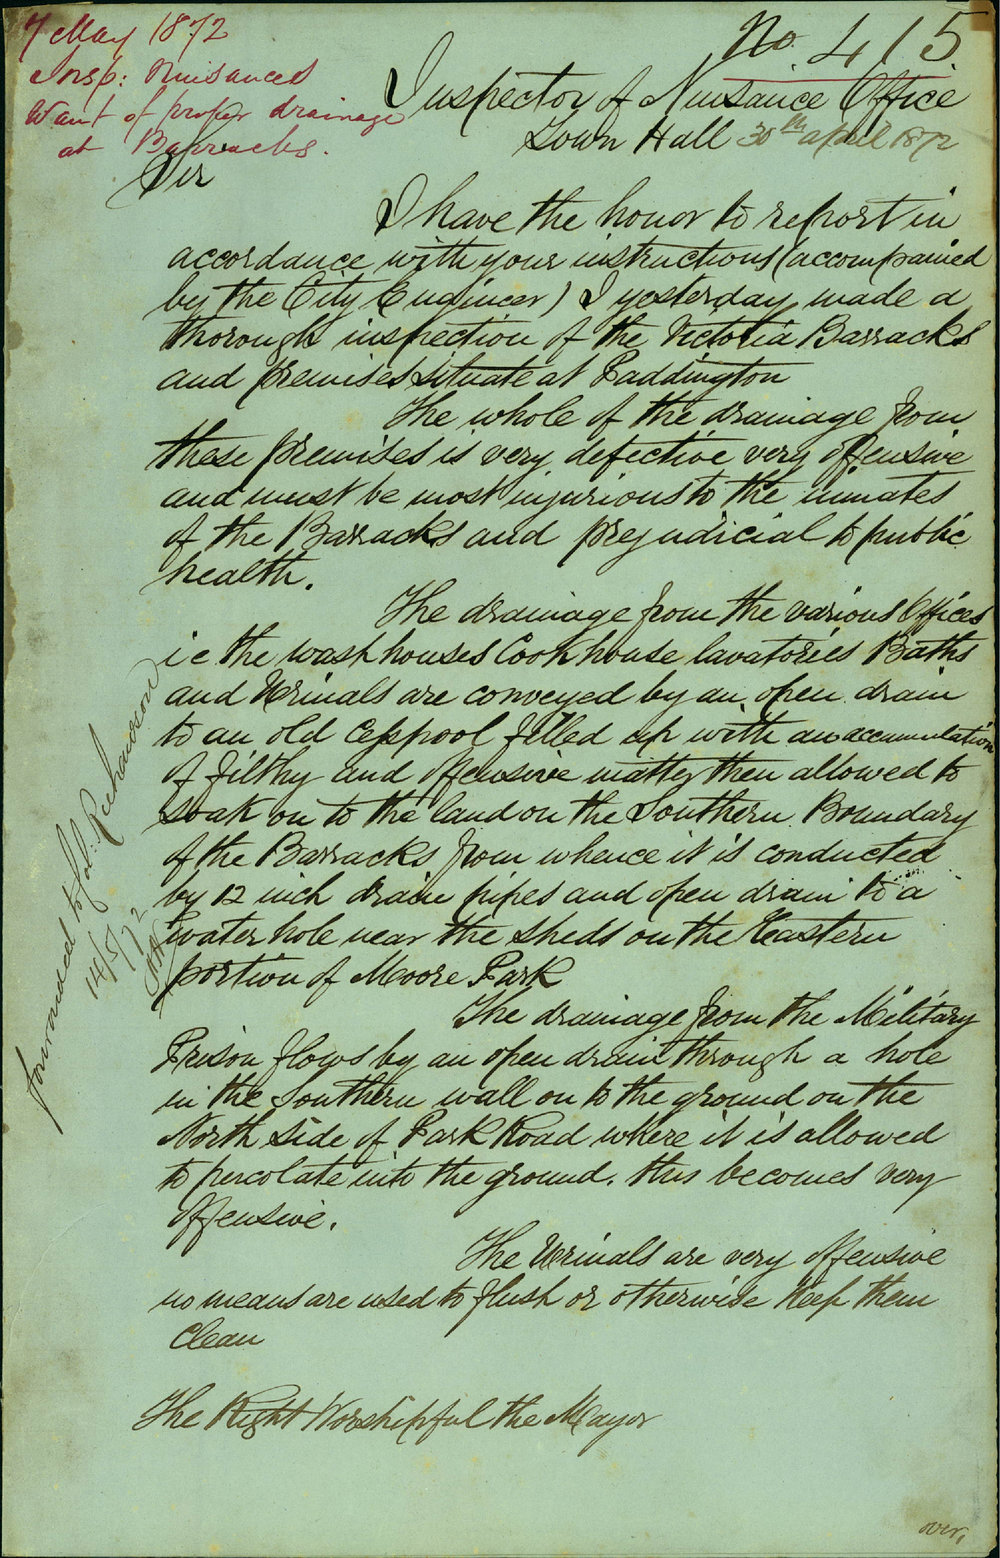 7 May 1872
Insp: Nuisances
Want of proper drainage
at Barracks.
No. 415
Inspector of Nuisance Office
Town Hall 30th april 1872
Sir
I have the honor to report in
accordance with your instructions (accompanied
by the City Engineer) I yesterday made a
thorough inspection of the Victoria Barracks
and premises situate at Paddington
The whole of the drainage from
these premises is very defective very offensive
and must be most injurious to the inmates
of the Barracks and prejudicial to public
health.
The drainage from the various Offices
i e the wash houses Cook house lavatories Baths
and Urinals are conveyed by an open drain
to an old Cesspool filled up with an accumulation
of filthy and offensive matter then allowed to
soak on to the land on the Southern Boundary
of the Barracks from whence it is conducted
by 12 inch drain pipes and open drain to a
water hole near the sheds on the Eastern
portion of Moore Park
The drainage from the Military
Prison flows by an open drain through a hole
in the Southern wall on to the ground on the
North side of Park Road where it is allowed
to percolate into the ground. this becomes very
offensive.
The Urinals are very offensive
no means are used to flush or otherwise keep them
Clean
The Right Worshipful the Mayor
over,
forwarded to Col: Richardson
14/5/72